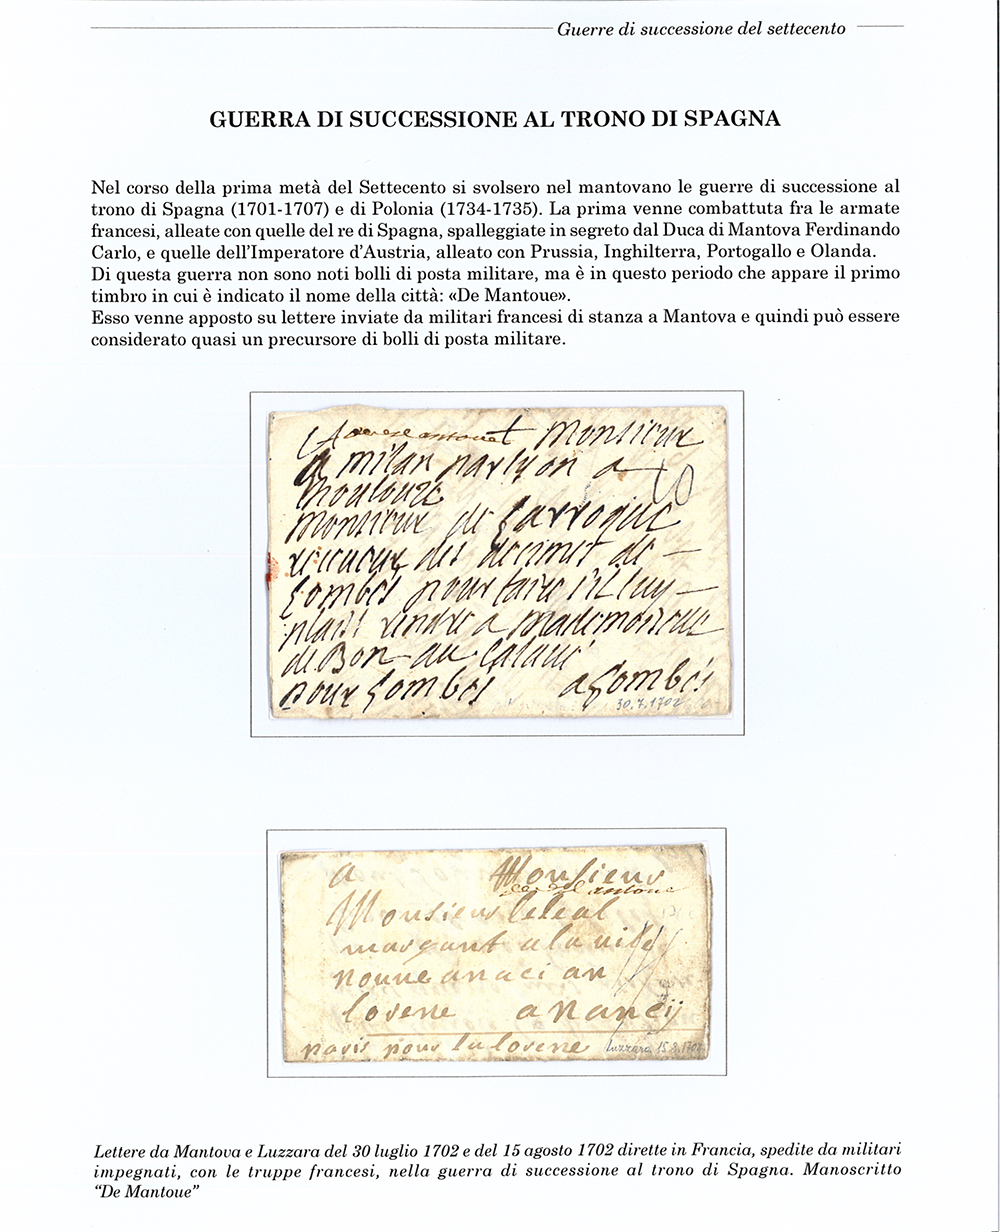 Guerre di successione del settecento
GUERRA DI SUCCESSIONE AL TRONO DI SPAGNA
Nel corso della prima metà del Settecento si svolsero nel mantovano le guerre di successione al
trono di Spagna (1701-1707) e di Polonia (1734-1735). La prima venne combattuta fra le armate
francesi, alleate con quelle del re di Spagna, spalleggiate in segreto dal Duca di Mantova Ferdinando
Carlo, e quelle dell'Imperatore d'Austria, alleato con Prussia, Inghilterra, Portogallo e Olanda.
Di questa guerra non sono noti bolli di posta militare, ma è in questo periodo che appare il primo
timbro in cui è indicato il nome della città: «De Mantoue».
Esso venne apposto su lettere inviate da militari francesi di stanza a Mantova e quindi può essere
considerato quasi un precursore di bolli di posta militare.
Monsieur
a milan par lyon a
Thoulouze
monsieur de Larroque
receueur des decimes de
Lombés pour faire s'il luy
plaist rendre a mademoiselle
de Bon au
pour Lombés a Lombés
30.7.1702
a Monsieur
de mantoue
Monsieur leleal
margant a la uille
nouue a naci an
lorene a nancij
paris pour la lorene
Luzzara 15.8.1702
Lettere da Mantova e Luzzara del 30 luglio 1702 e del 15 agosto 1702 dirette in Francia, spedite da militari
impegnati, con le truppe francesi, nella guerra di successione al trono di Spagna. Manoscritto
"De Mantoue"